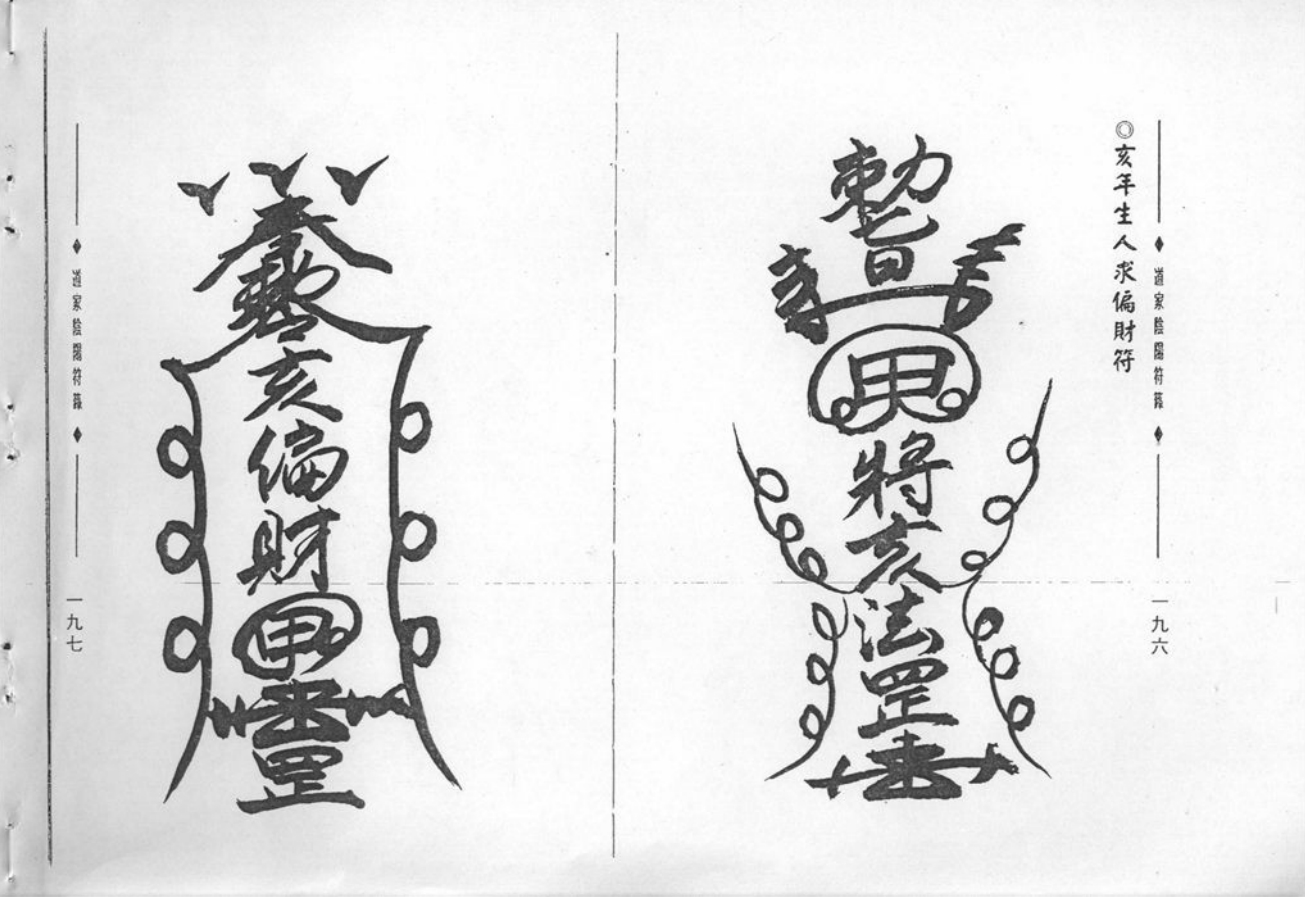 道家陰陽符籙
一九六
◎亥年生人求偏財符
勅
將亥法罡
道家陰陽符籙
一九七
亥偏財
罡